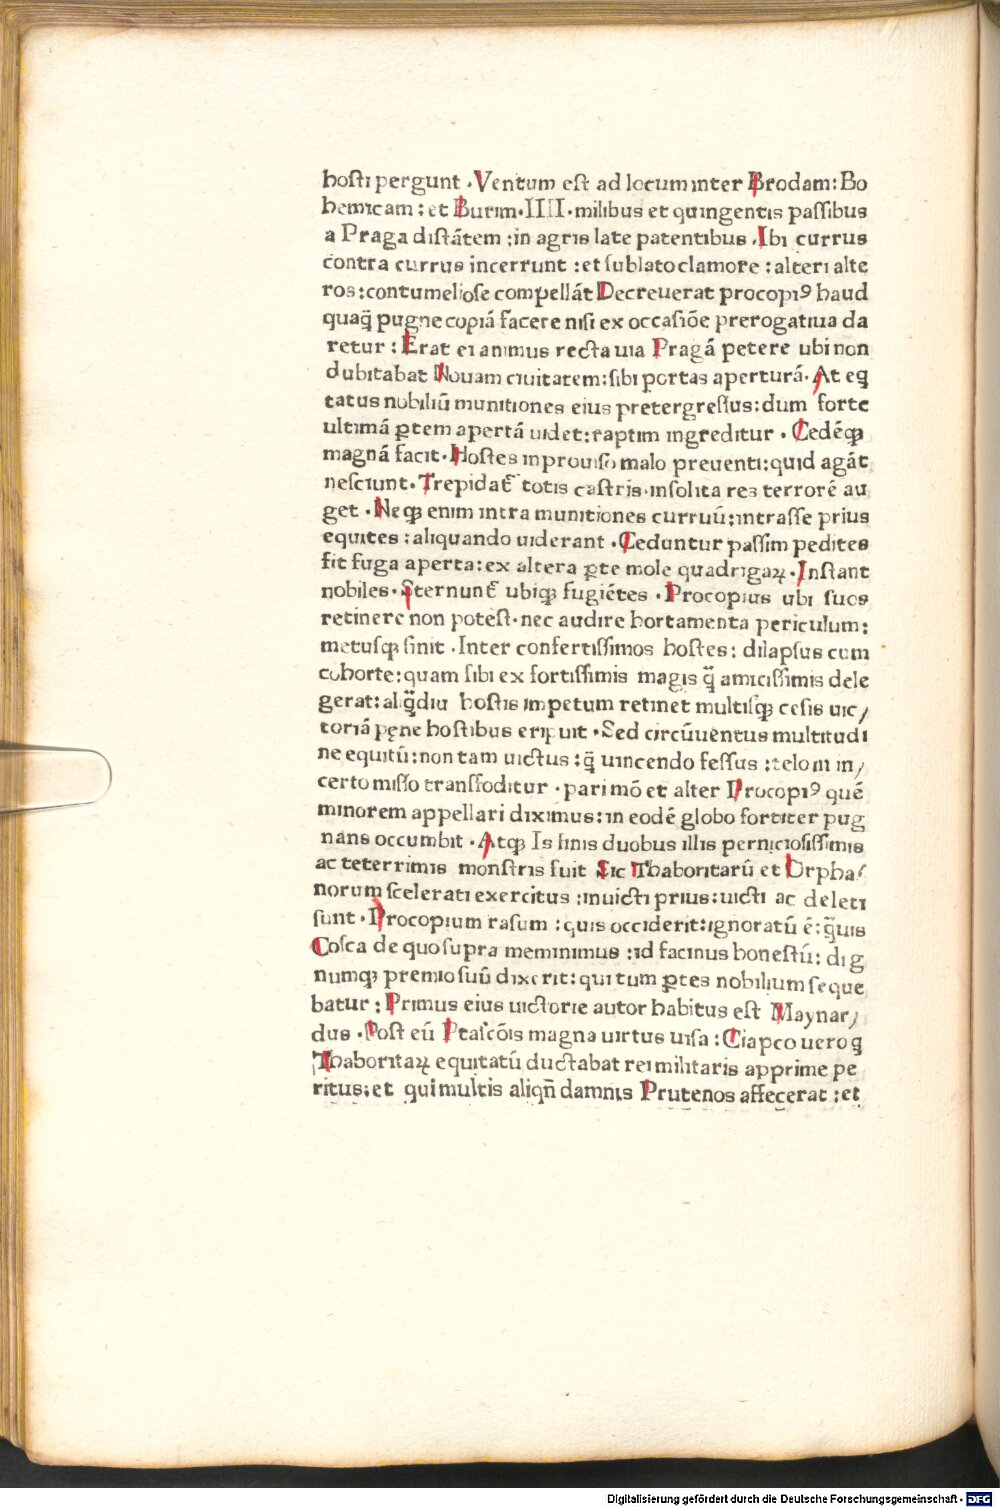 hosti pergunt . Ventum est ad locum inter Brodam: Bo
hemicam : et Burim . IIII . milibus et quingentis passibus
a Praga distātem : in agris late patentibus . Ibi currus
contra currus incerrunt : et sublato clamore : alteri alte
ros : contumeliose compellāt Decreuerat procopiꝰ haud
quaq̄ pugne copiā facere nisi ex occasiōe prerogatiua da
retur : Erat ei animus recta uia Pragā petere ubi non
dubitabat Nouam ciuitatem : sibi portas aperturā . At eq̄
tatus nobiliū munitiones eius pretergressus : dum forte
ultimā ꝑtem apertā uidet : raptim ingreditur . Cedēqꝫ
magnā facit . Hostes improuiso malo preuenti : quid agāt
nesciunt . Trepidat̄ totis castris . insolita res terrorē au
get . Neqꝫ enim intra munitiones curruū : intrasse prius
equites : aliquando uiderant . Ceduntur passim pedites
fit fuga aperta : ex altera ꝑte mole quadrigaꝝ . Instant
nobiles . Sternunt̄ ubiqꝫ fugiētes . Procopius ubi suos
retinere non potest . nec audire hortamenta periculum :
metusqꝫ sinit . Inter confertissimos hostes : dilapsus cum
cohorte : quam sibi ex fortissimis magis q̄ amicissimis dele
gerat : aliq̄diu hostis impetum retinet multisqꝫ cesis uic/
toriā pęne hostibus eripuit . Sed circūuentus multitudi
ne equitū : non tam uictus : q̄ uincendo fessus : telo in in/
certo misso transfoditur . pari mō et alter Procopiꝰ quē
minorem appellari diximus : in eodē globo fortiter pug
nans occumbit . Atqꝫ Is finis duobus illis perniciosissimis
ac teterrimis monstris fuit Sic Thaboritarū et Orpha/
norum scelerati exercitus : inuicti prius : uicti ac deleti
sunt . Procopium rasum : quis occiderit : ignoratū ē : q̄uis
Cosca de quo supra meminimus : id facinus honestū : dig
numqꝫ premio suū dixerit : qui tum ꝑtes nobilium seque
batur : Primus eius uictorie autor habitus est Maynar/
dus . Post eū Ptascōis magna uirtus uisa : Ciapco uero q̄
Thaboritaꝝ equitatū ductabat rei militaris apprime pe
ritus : et qui multis aliqn̄ damnis Prutenos affecerat : et
Digitalisierung gefördert durch die Deutsche Forschungsgemeinschaft - DFG